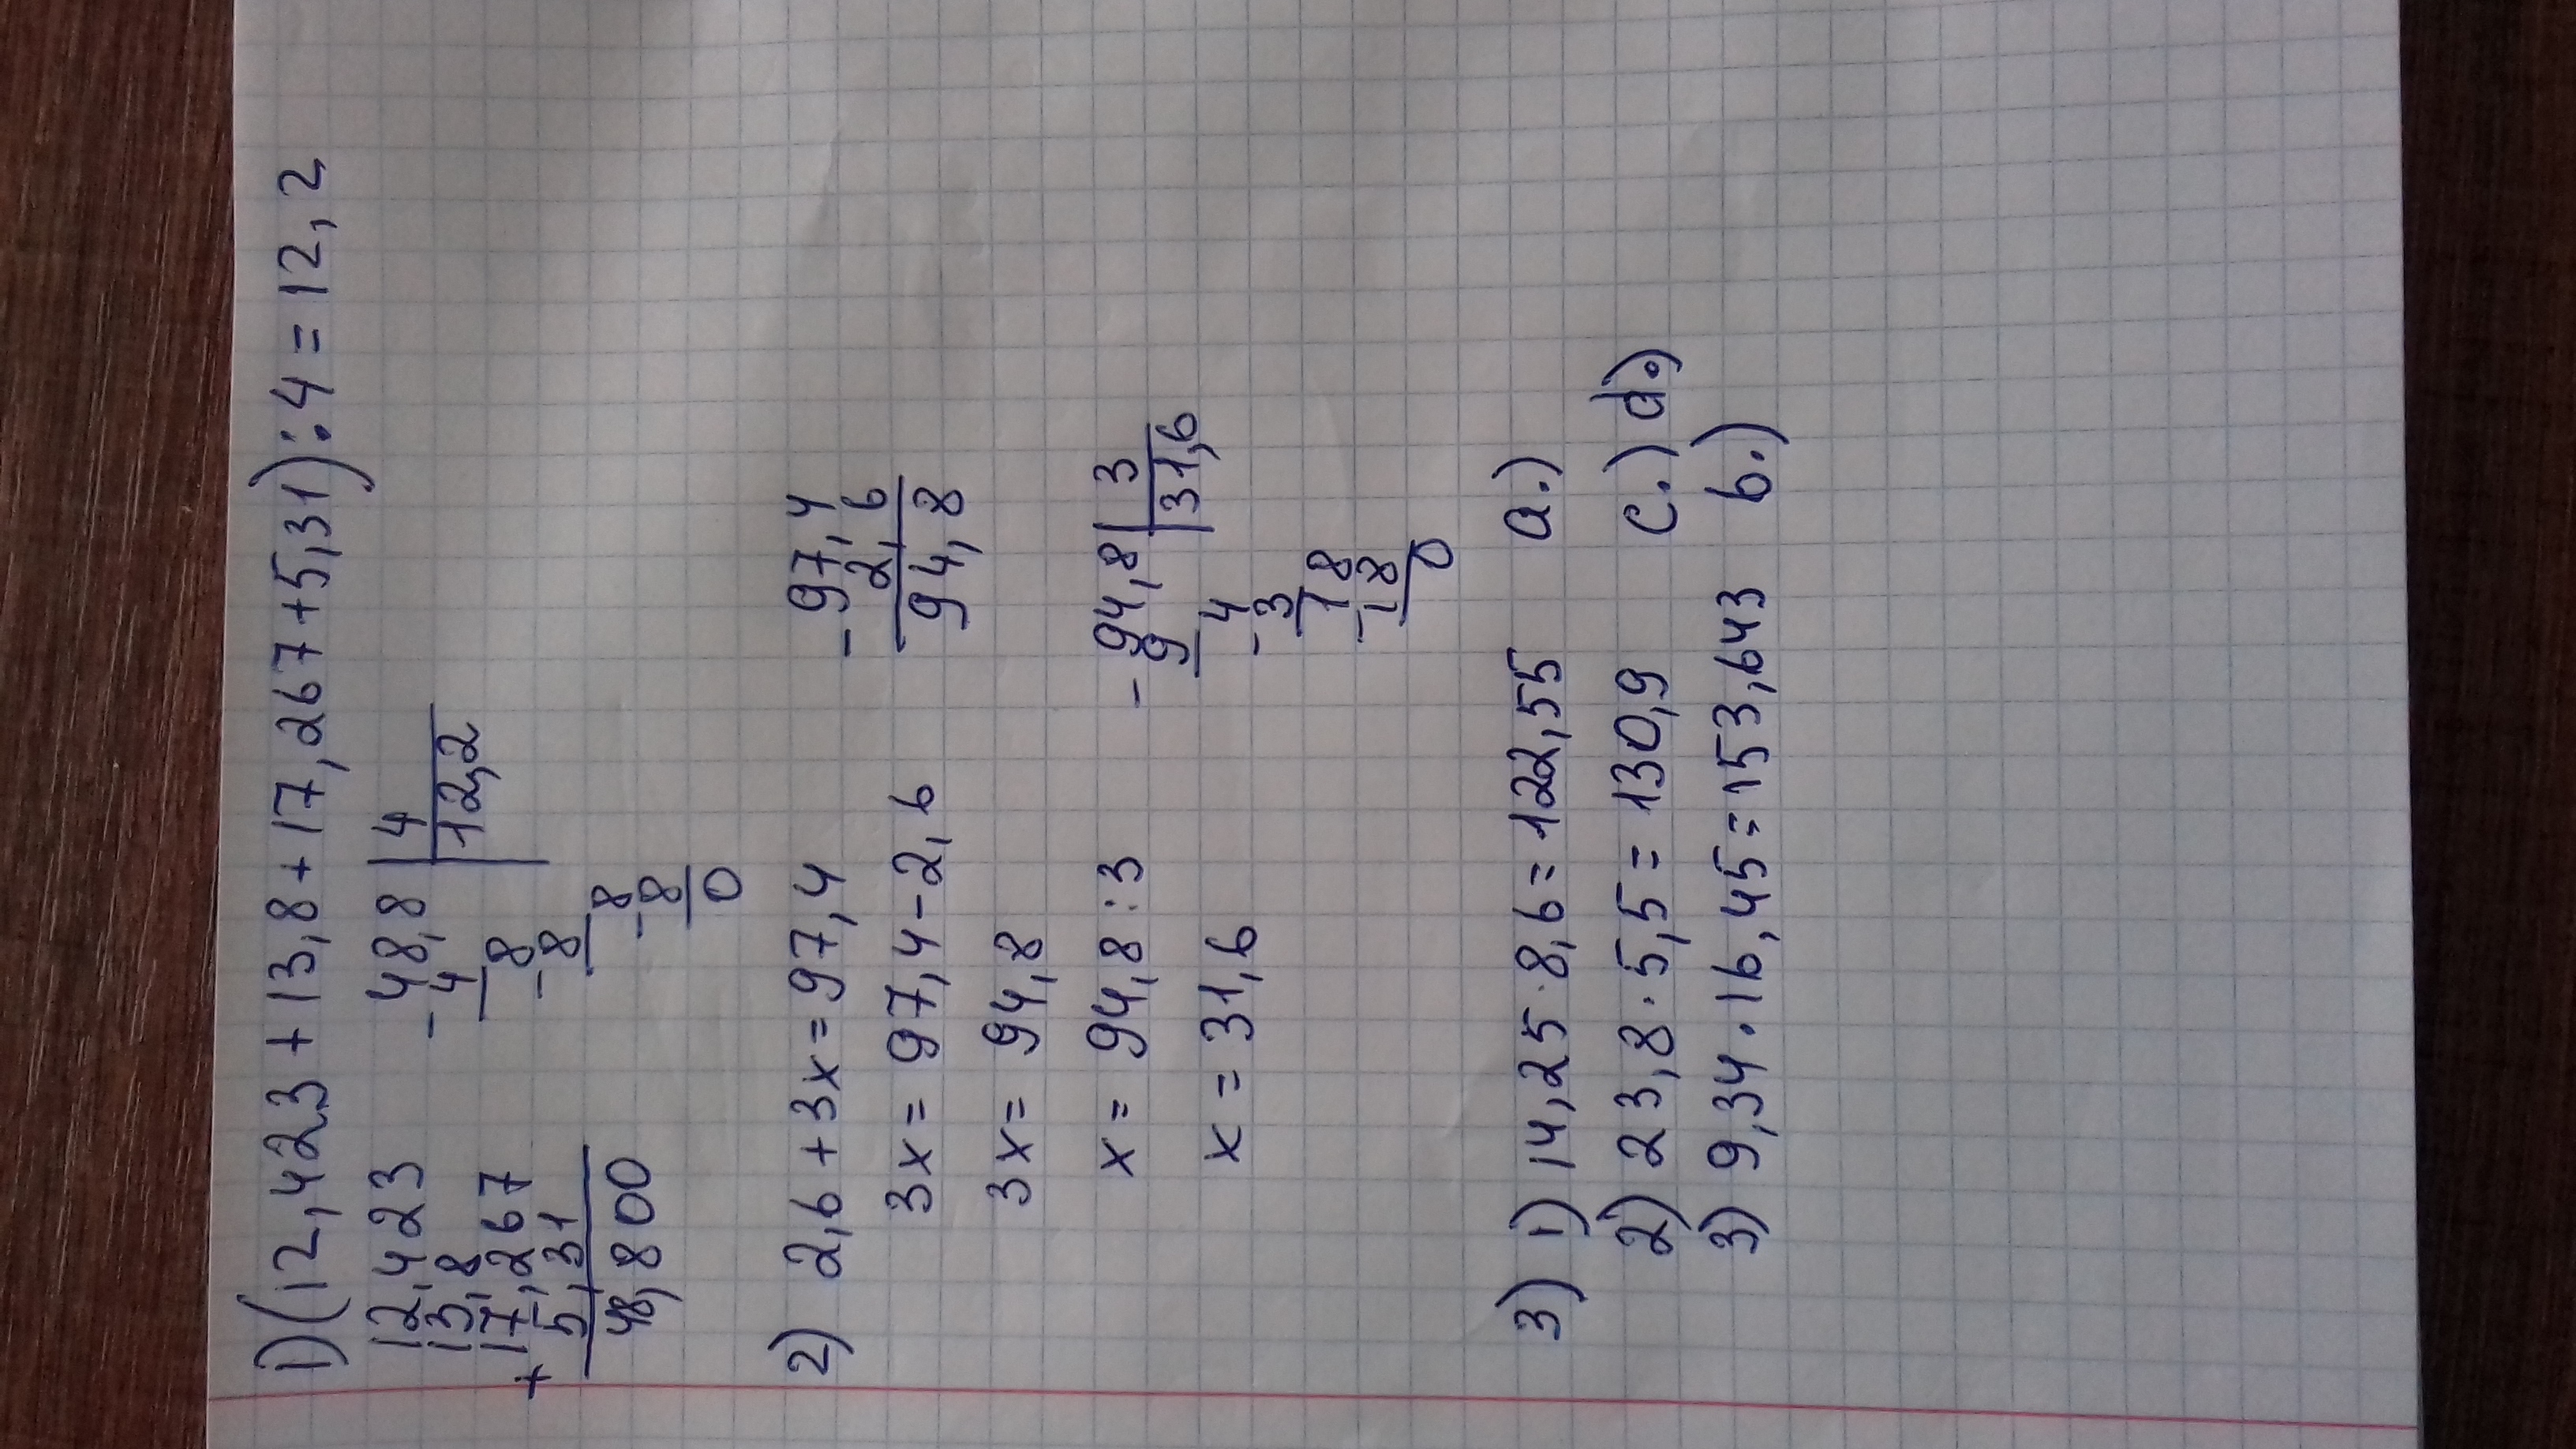 1) (12,423 + 13,8 + 17,267 + 5,31) : 4 = 12,2
12,423
13,8
17,267
+ 5,31
48,800
- 48,8 | 4
4 | 12,2
8
- 8
8
- 8
0
2) 2,6 + 3x = 97,4
3x = 97,4 - 2,6
3x = 94,8
x = 94,8 : 3
x = 31,6
- 97,4
2,6
94,8
- 94,8 | 3
9 | 31,6
4
- 3
18
- 18
0
3) 1) 14,25 · 8,6 = 122,55 a.)
2) 23,8 · 5,5 = 130,9 c.) d.)
3) 9,34 · 16,45 = 153,643 b.)